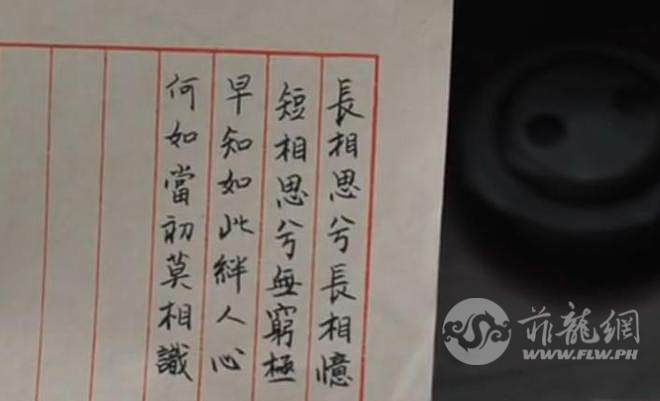 長相思兮長相憶
短相思兮無窮極
早知如此絆人心
何如當初莫相識
菲龍網
WWW.FLW.PH